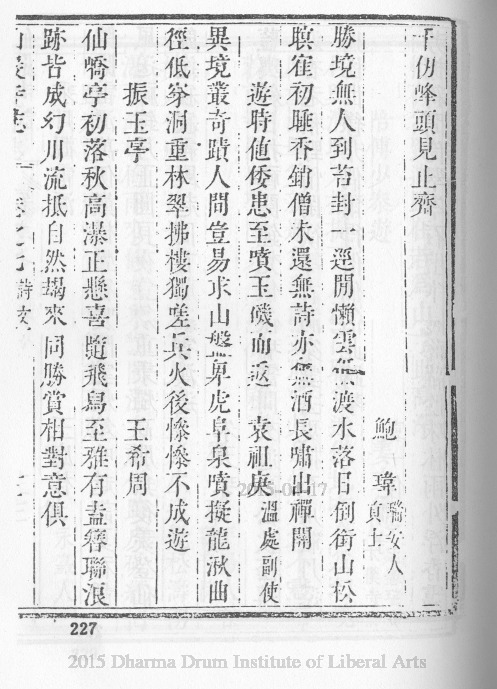 千仞峰頭見止齋
鮑　瑋 瑞安人 貢士
勝境無人到苔封一逕開懶雲渡水落日倒銜山松
暝寉初歸香銷僧未還無詩亦無酒長嘯出禪關
遊時値倭患至噴玉磯而返　袁祖庚 溫處副使
異境叢奇蹟人間豈易求山盤卓虎阜泉噴擬龍湫曲
徑低穿洞重林翠拂樓獨嗟兵火後慘慘不成遊
振玉亭　王希周
仙嶠亭初落秋高瀑正懸喜隨飛舄至雅有盍簪聯浪
跡皆成幻川流抵自然朅來同勝賞相對意俱
寺志　卷之七 詩文
2015-04-17
227
2015 Dharma Drum Institute of Liberal Arts